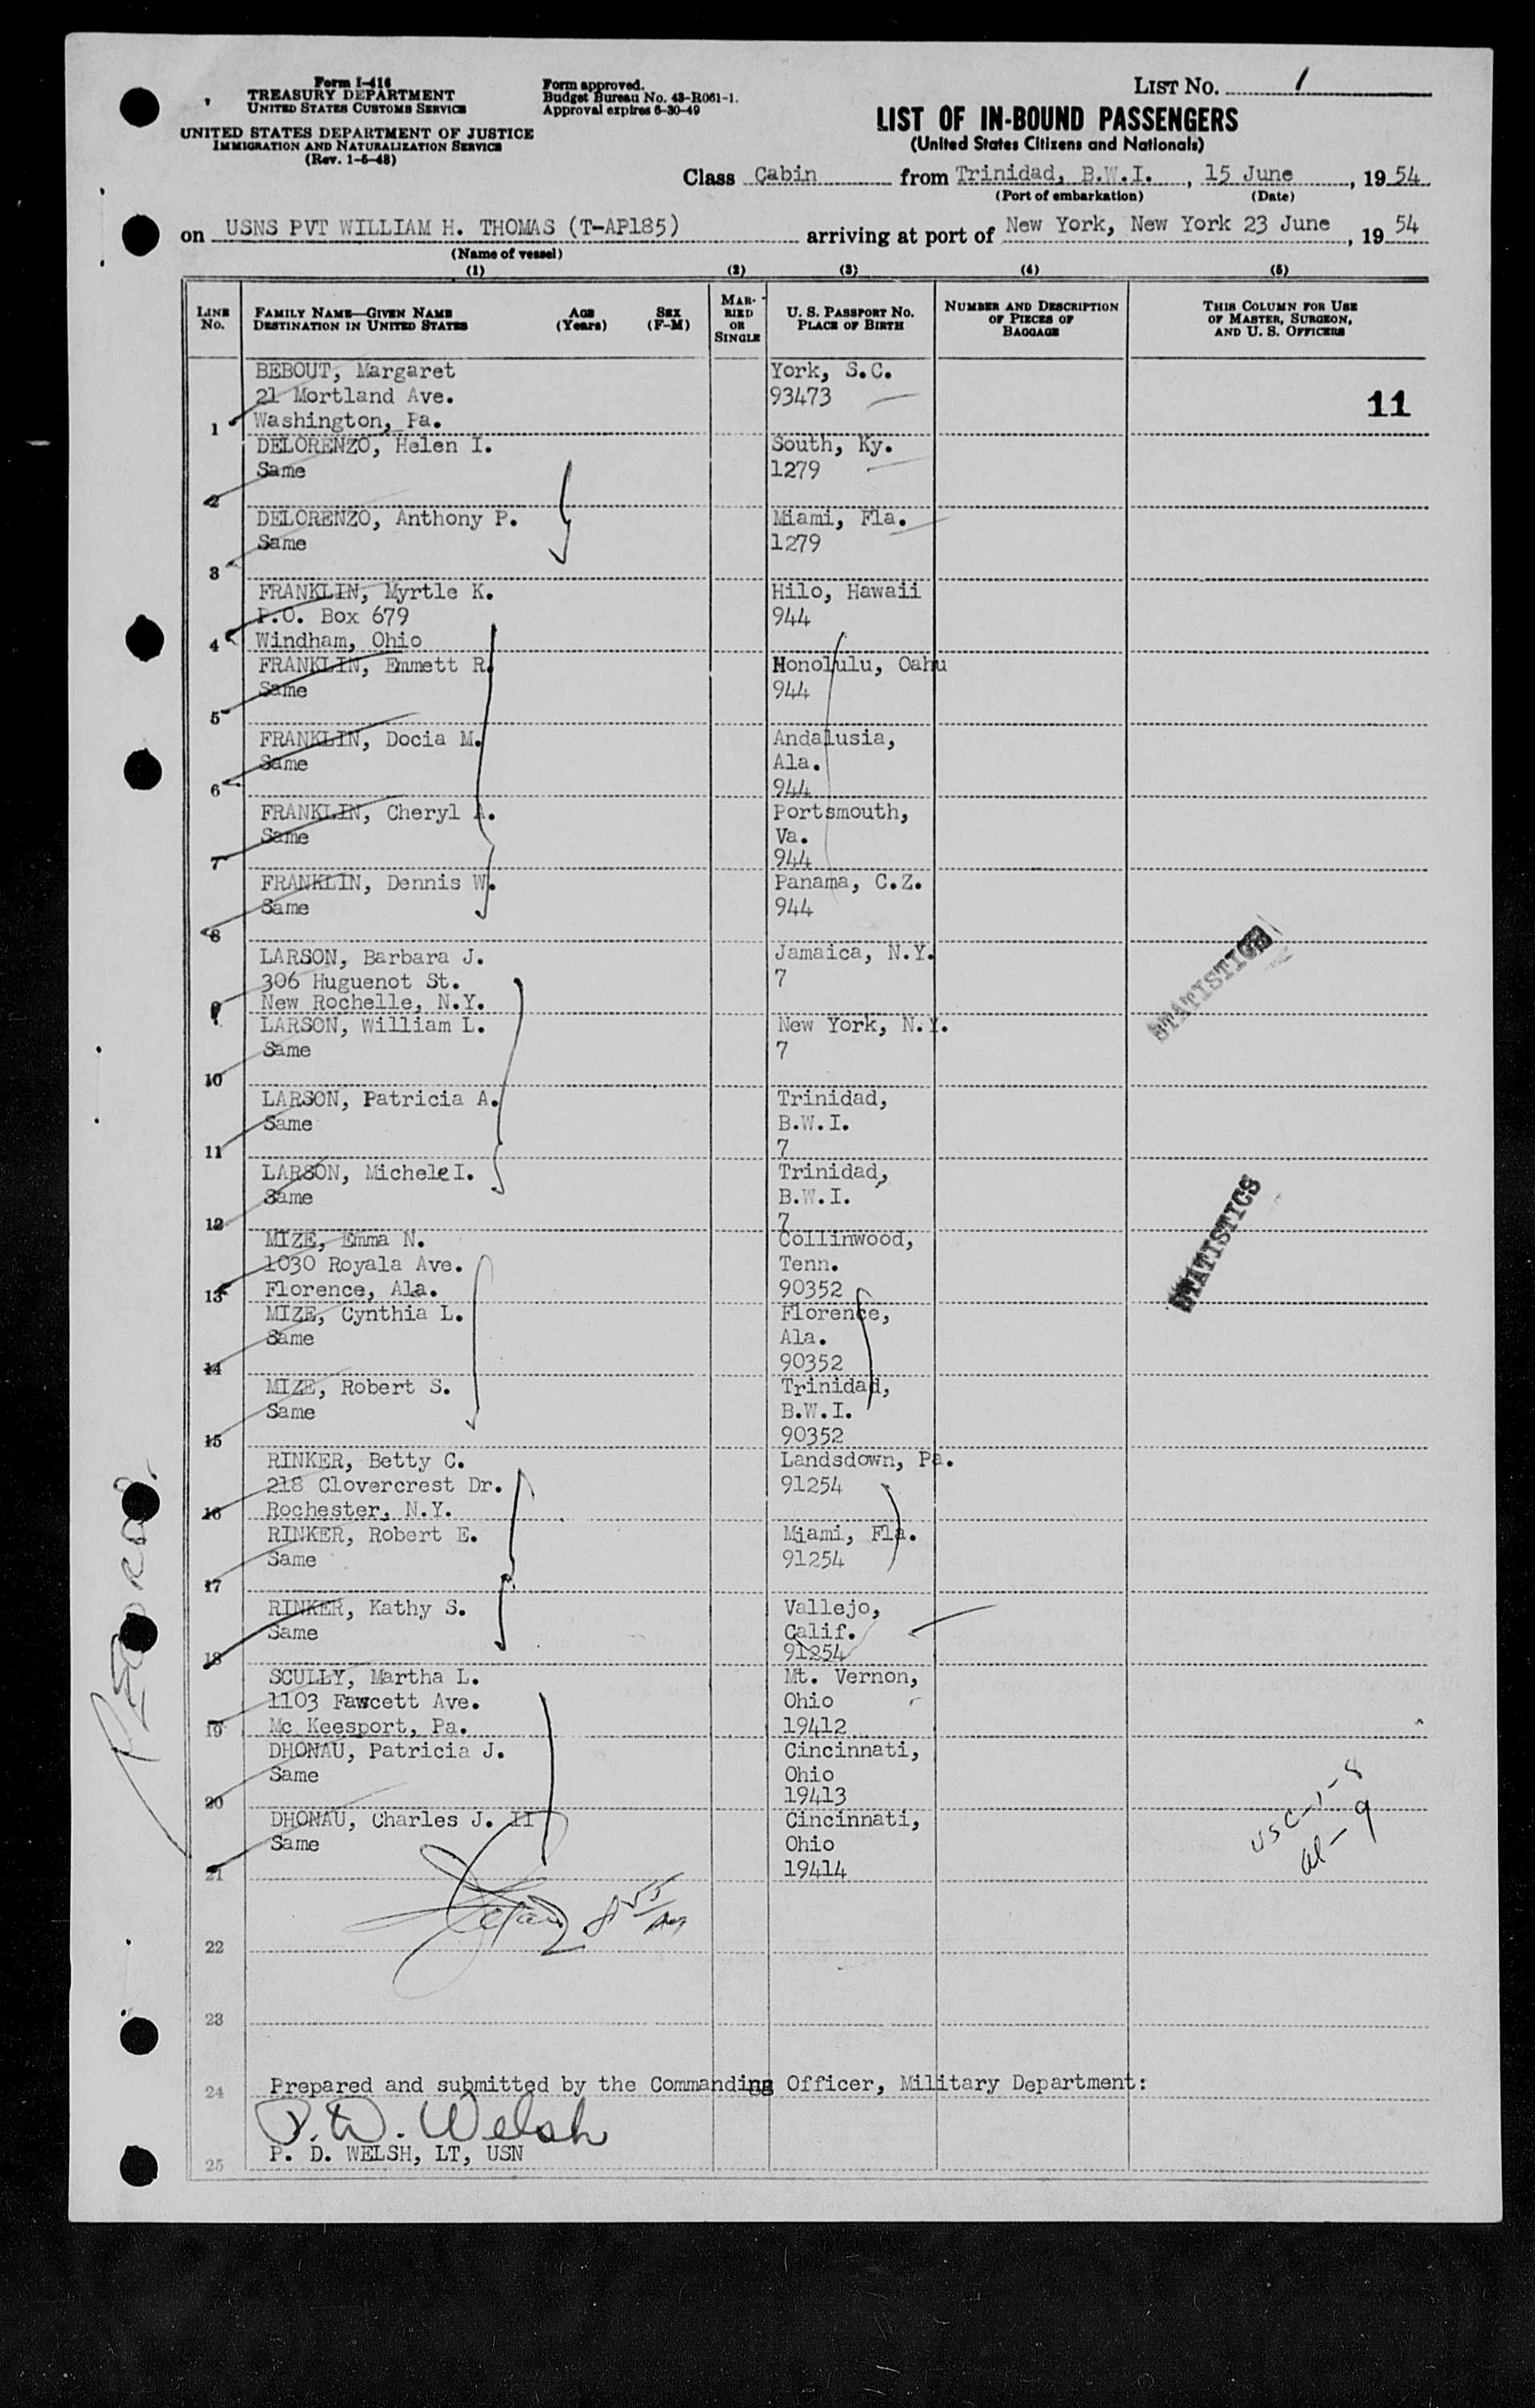 Form I-416
TREASURY DEPARTMENT
UNITED STATES CUSTOMS SERVICE
UNITED STATES DEPARTMENT OF JUSTICE
IMMIGRATION AND NATURALIZATION SERVICE
(Rev. 1-5-48)
Form approved.
Budget Bureau No. 43-R061-1.
Approval expires 6-30-49
LIST No. 1
LIST OF IN-BOUND PASSENGERS
(United States Citizens and Nationals)
Class Cabin from Trinidad, B.W.I., 15 June, 1954
(Port of embarkation) (Date)
on USNS PVT WILLIAM H. THOMAS (T-AP185) arriving at port of New York, New York 23 June, 1954
(Name of vessel)
(1) (2) (3) (4) (5)
LINE No.
FAMILY NAME—GIVEN NAME DESTINATION IN UNITED STATES
AGE (Years)
SEX (F-M)
MARRIED OR SINGLE
U. S. PASSPORT No. PLACE OF BIRTH
NUMBER AND DESCRIPTION OF PIECES OF BAGGAGE
THIS COLUMN FOR USE OF MASTER, SURGEON, AND U. S. OFFICERS
BEBOUT, Margaret York, S.C.
21 Mortland Ave. 93473 11
1 Washington, Pa.
DELORENZO, Helen I. South, Ky.
Same 1279
2
DELORENZO, Anthony P. Miami, Fla.
Same 1279
3
FRANKLIN, Myrtle K. Hilo, Hawaii
P.O. Box 679 944
4 Windham, Ohio
FRANKLIN, Emmett R. Honolulu, Oahu
Same 944
5
FRANKLIN, Docia M. Andalusia,
Same Ala.
6 944
FRANKLIN, Cheryl A. Portsmouth,
Same Va.
7 944
FRANKLIN, Dennis W. Panama, C.Z.
Same 944
8
LARSON, Barbara J. Jamaica, N.Y.
306 Huguenot St. 7
9 New Rochelle, N.Y.
STATISTICS
LARSON, William L. New York, N.Y.
Same 7
10
LARSON, Patricia A. Trinidad,
Same B.W.I.
11 7
LARSON, Michele I. Trinidad,
Same B.W.I.
12 7
STATISTICS
MIZE, Emma N. Collinwood,
1030 Royala Ave. Tenn.
13 Florence, Ala. 90352
MIZE, Cynthia L. Florence,
Same Ala.
14 90352
MIZE, Robert S. Trinidad,
Same B.W.I.
15 90352
RINKER, Betty C. Landsdown, Pa.
218 Clovercrest Dr. 91254
16 Rochester, N.Y.
RINKER, Robert E. Miami, Fla.
Same 91254
17
RINKER, Kathy S. Vallejo,
Same Calif.
18 91254
SCULLY, Martha L. Mt. Vernon,
1103 Fawcett Ave. Ohio
19 Mc Keesport, Pa. 19412
DHONAU, Patricia J. Cincinnati,
Same Ohio
20 19413
DHONAU, Charles J. II Cincinnati,
Same Ohio
21 19414
22
23
24 Prepared and submitted by the Commanding Officer, Military Department:
P. D. Welsh
25 P. D. WELSH, LT, USN